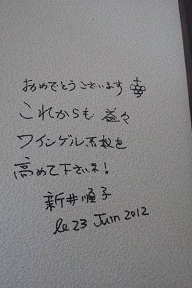 おめでとうございます
これからも 益々
ワインゲル係数を
高めて下さいネ!
新井順子
le 23 Juin 2012